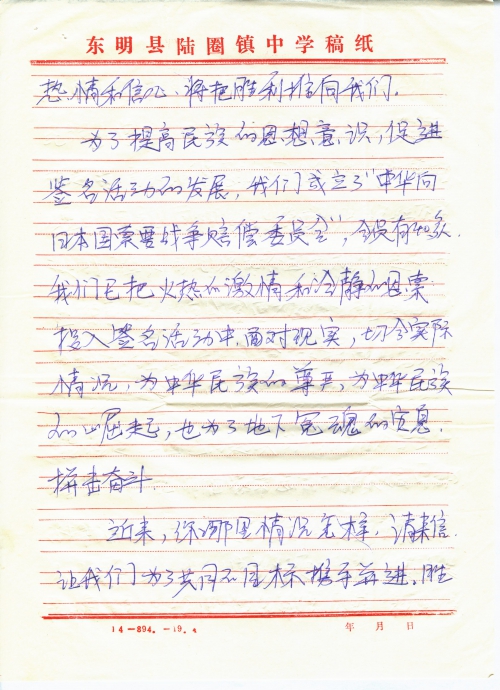 东明县陆圈镇中学稿纸
热情和信心，将把胜利推向我们.
为了提高民族的思想意识，促进
签名活动的发展，我们成立了"中华向
日本国索要战争赔偿委员会"，会员有40多人.
我们已把火热的激情和冷静的思索
投入签名活动中，面对现实，切合实际
情况，为中华民族的尊严，为中华民族
的山屈起，也为了地下冤魂的安息.
拼击奋斗.
近来，你那里情况怎样，请来信.
让我们为了共同的目标携手并进，胜
14-894.-19.4
年 月 日